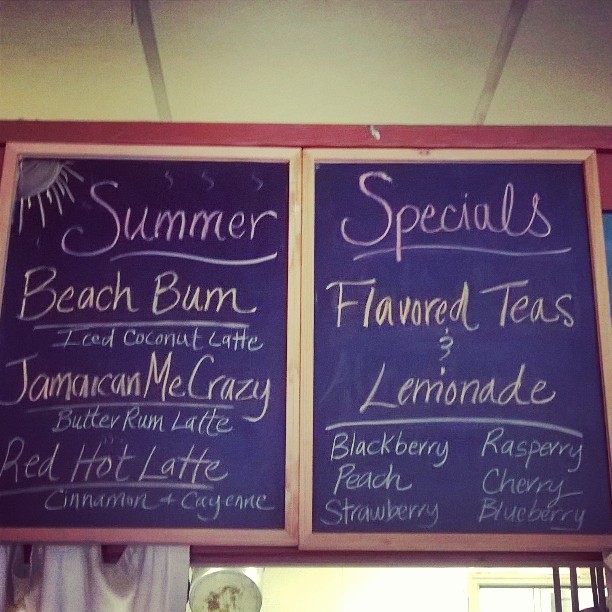 Summer
Beach Bum
Iced Coconut Latte
Jamaican Me Crazy
Butter Rum Latte
Red Hot Latte
Cinnamon + Cayenne
Specials
Flavored Teas
&
Lemonade
Blackberry Rasperry
Peach Cherry
Strawberry Blueberry